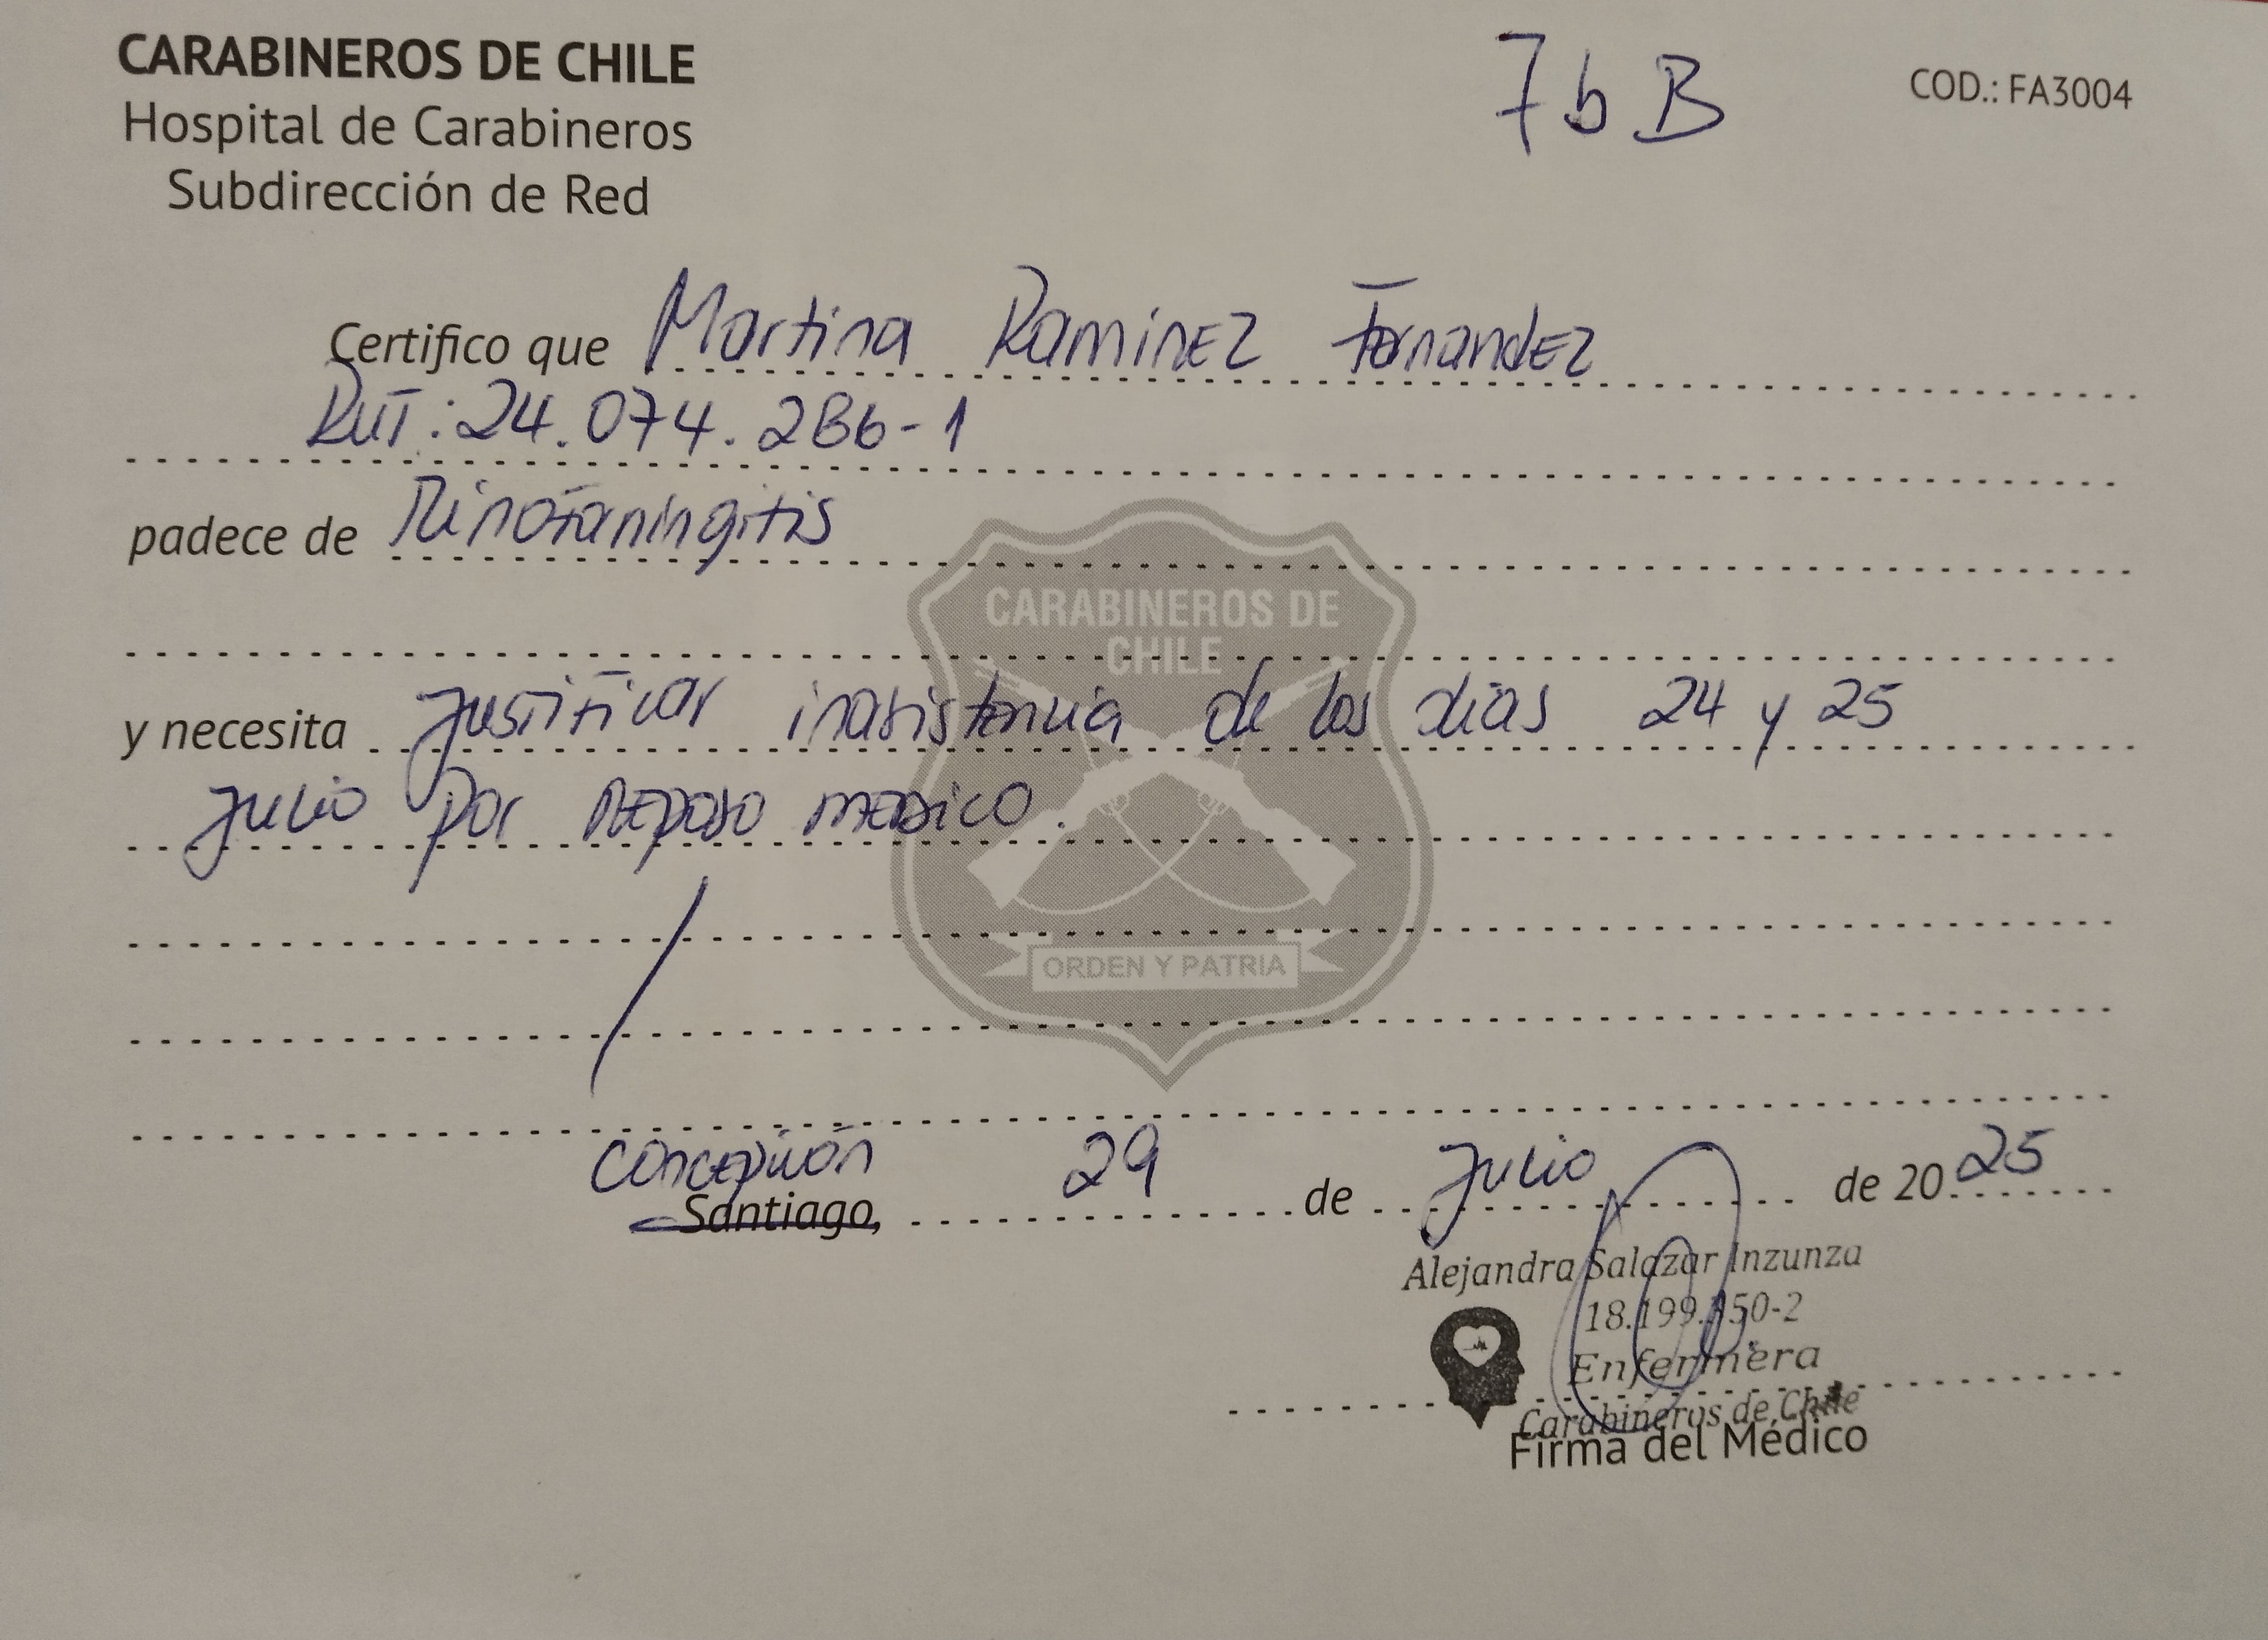 CARABINEROS DE CHILE
Hospital de Carabineros
Subdirección de Red
7b B
COD.: FA3004
Certifico que Martina Ramirez Fernandez
RUT: 24.074.286-1
padece de Rinofaringitis
CARABINEROS DE
CHILE
y necesita Justificar inasistencia de los días 24 y 25
Julio por reposo medico.
ORDEN Y PATRIA
Concepción
Santiago, 29 de Julio de 2025
Alejandra Salazar Inzunza
Enfermera
Carabineros de Chile
Firma del Médico